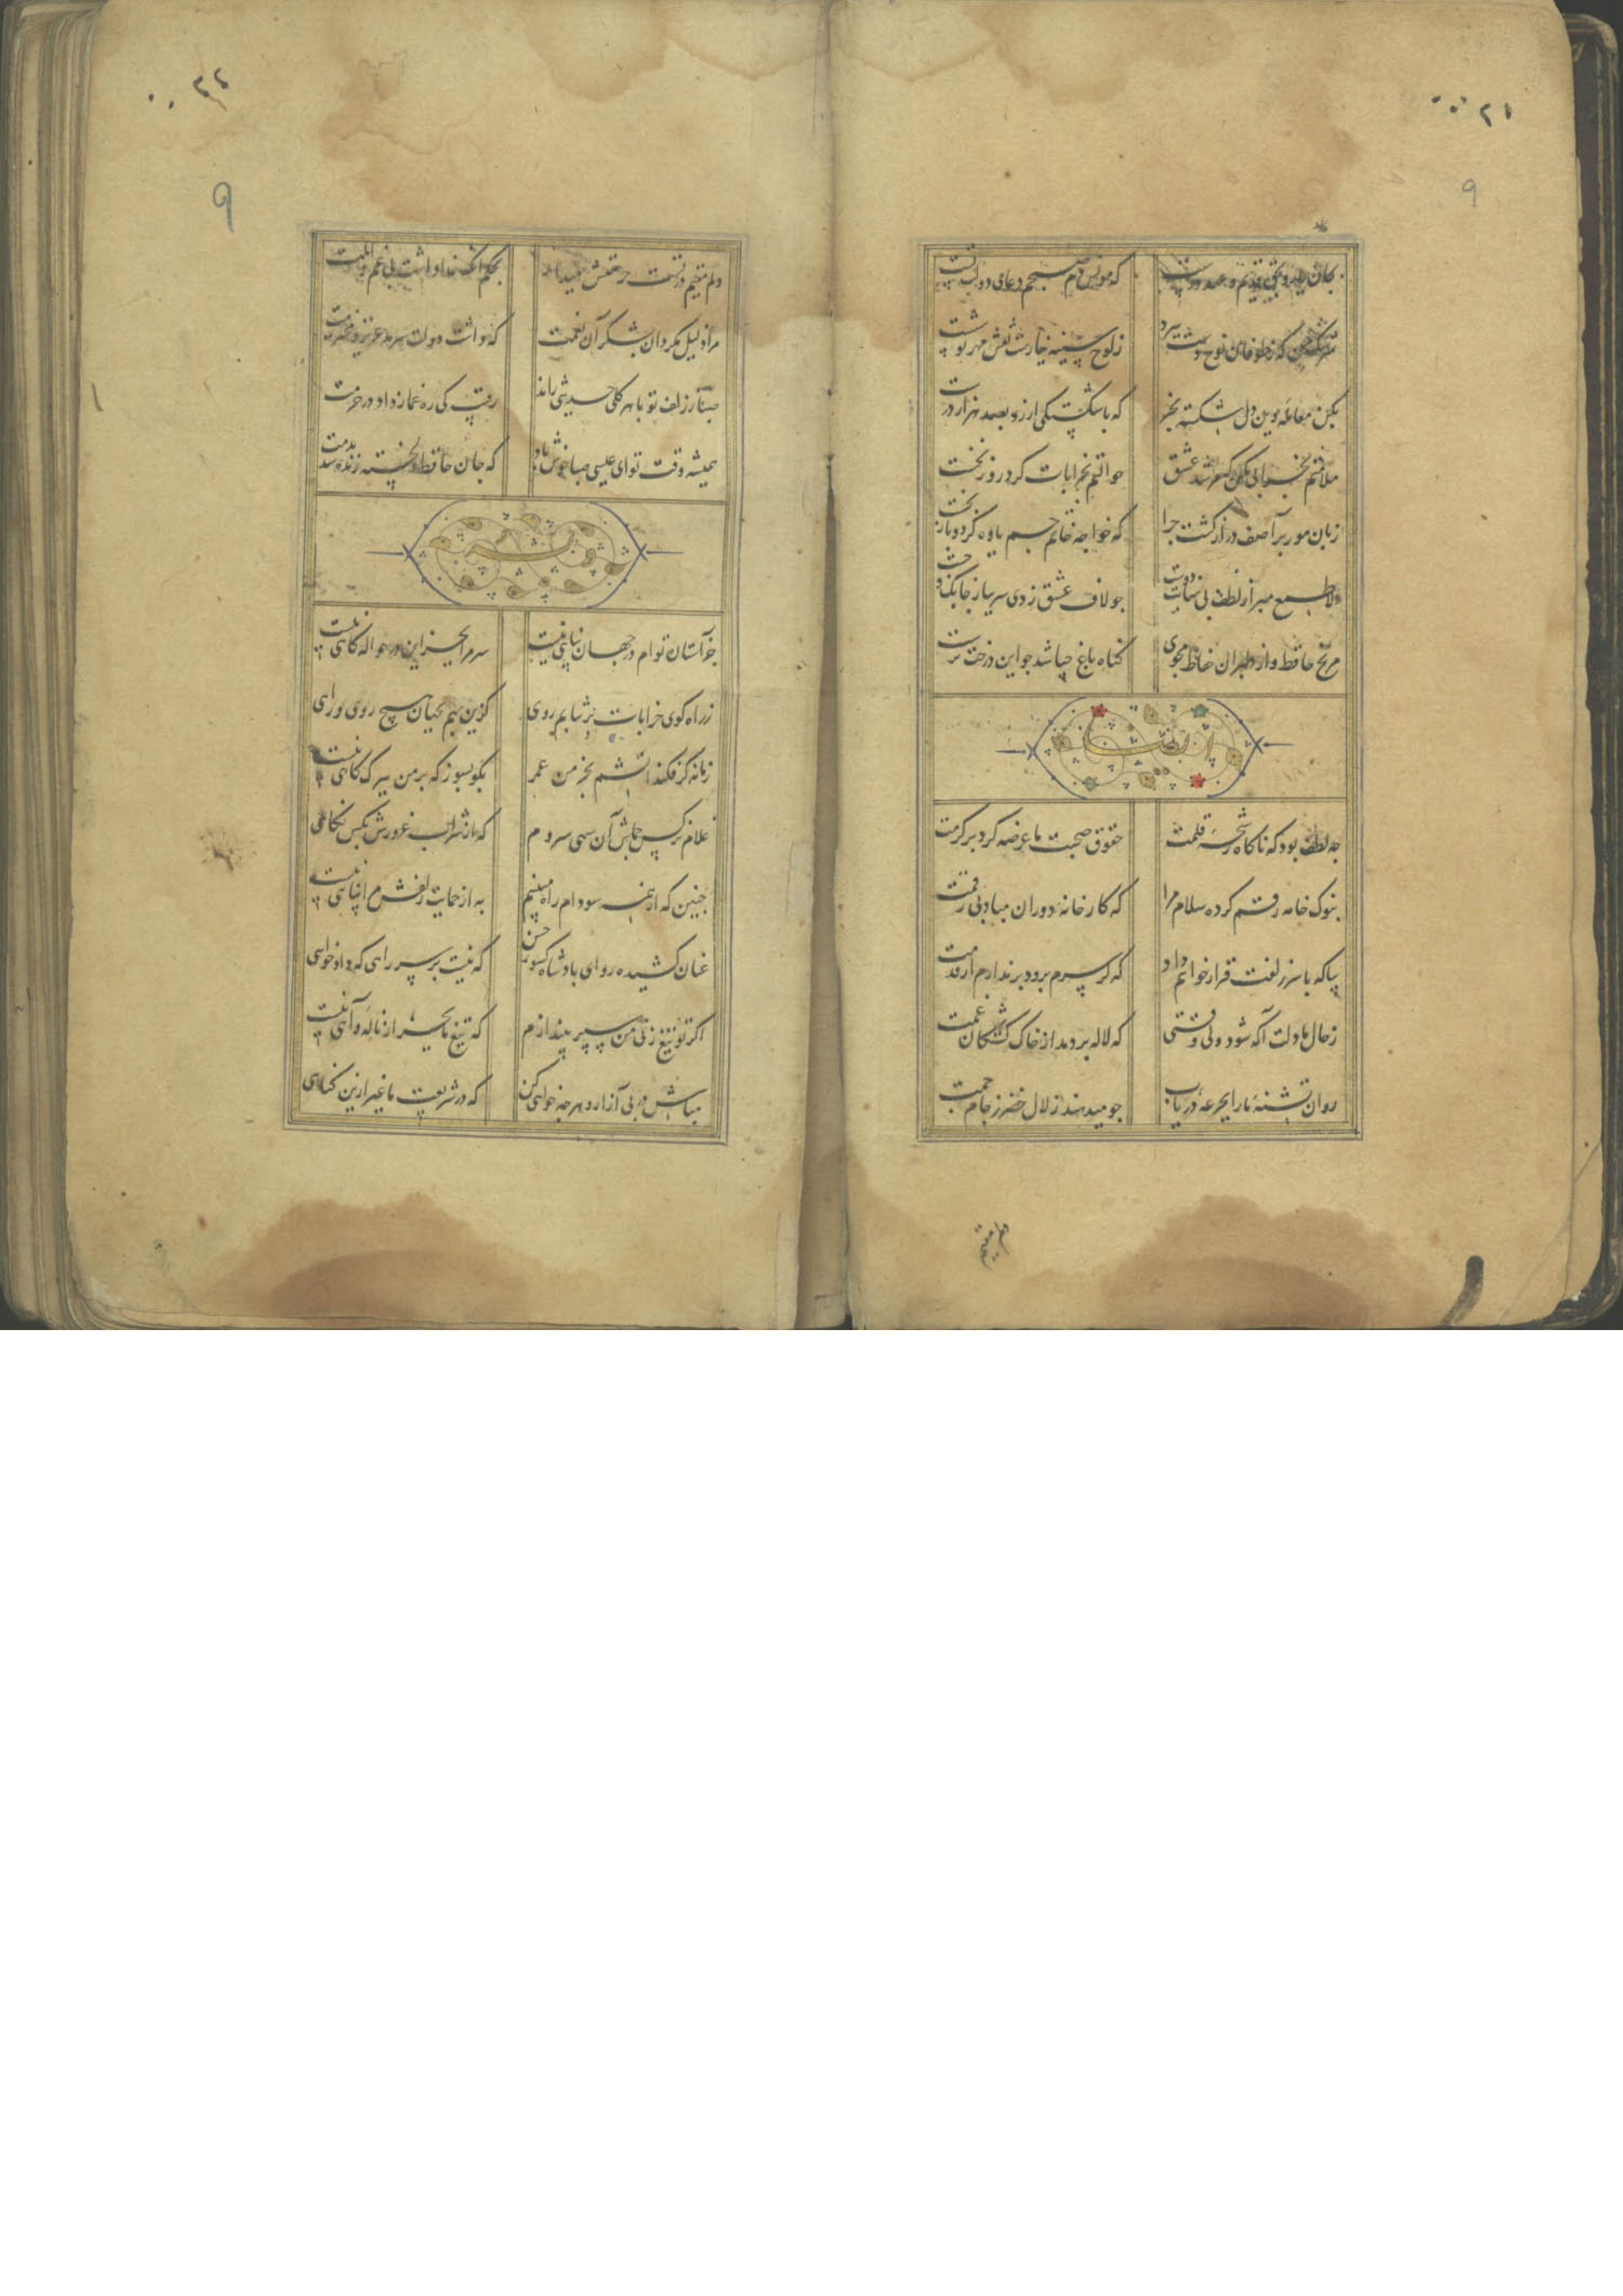 ۲۱
۹
بجان پیر و حق قدیم و عهد درست که مونس دم صبحم دعای دولت تست
سرشک من که ز طوفان نوح دست برد ز لوح سینه نیارست نقش مهر تو شست
بکن معامله وین دل شکسته بخر که با شکستگی ارزد بصد هزار درست
ملامتم بخرابی مکن که مرشد عشق حوالتم بخرابات کرد روز نخست
زبان مور بر آصف دراز گشت چرا که خواجه خاتم جم یاوه کرد و باز نجست
دلا طمع مبر از لطف بی نهایت دوست چو لاف عشق زدی سر بباز چابک و چست
مرنج حافظ و از دلبران حفاظ مجوی گناه باغ چباشد چو این درخت نرست
چه لطف بود که ناگاه رشحه قلمت حقوق صحبت ما عرضه کرد بر کرمت
بنوک خامه رقم کرده سلام مرا که کارخانه دوران مباد بی رقمت
بیا که با سر زلفت قرار خواهم داد که گر سرم برود برندارم از قدمت
ز حال ما دلت آگه شود ولی وقتی که لاله بردمد از خاک کشتگان غمت
روان تشنه ما را بجرعه دریاب چو میدهند زلال خضر ز جام جمت
دلم مقیم
۲۲
۹
دلم مقیم در تست حرمتش میدار بحکم آنکه خدا داشت بی غم و المت
مرا ذلیل مگردان بشکر آن نعمت که داشت دولت سرمد عزیز و محترمت
صبا ز زلف تو با هر گلی حدیثی راند رقیب کی ره غماز داد در حرمت
همیشه وقت تو ای عیسی صبا خوش باد که جان حافظ دلخسته زنده شد بدمت
جز آستان توام در جهان پناهی نیست سر مرا بجز این در حواله گاهی نیست
ز راه کوی خرابات برنتابم روی کزین بهم بجهان هیچ روی و راهی
زمانه گر فکند آتشم بخرمن عمر بگو بسوز که بر من ببرگ کاهی نیست
غلام نرگس جماش آن سهی سروم که از شراب غرورش بکس نگاهی
چنین که از همه سو دام راه میبینم به از حمایت زلفش مرا پناهی نیست
عنان کشیده رو ای پادشاه کشور حسن که نیست بر سر راهی که دادخواهی
اگر تو تیغ زنی من سپر بیندازم که تیغ ما بجز از ناله و آهی نیست
مباش در پی آزار و هر چه خواهی کن که در شریعت ما غیر ازین گناهی